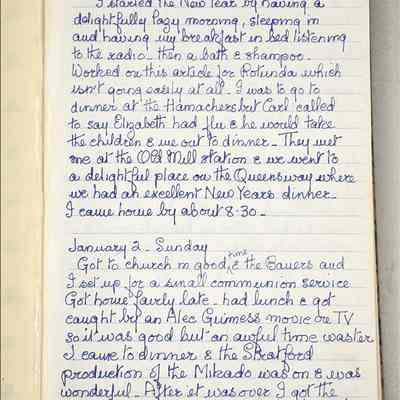 I started the New Year by having a
delightfully lazy morning, sleeping in
and having my breakfast in bed listening
to the radio - then a bath & shampoo.
Worked on this article for Rotunda which
isn't going easily at all. I was to go to
dinner at the Hamachers but Carl called
to say Elizabeth had flu & he would take
the children & me out to dinner - They met
me at the Old Mill station & we went to
a delightful place on the Queensway where
we had an excellent New Years dinner.
I came home by about 8-30 -
January 2 - Sunday
Got to church in good time & the Bauers and
I set up for a small communion service
Got home fairly late - had lunch & got
caught by an Alec Guiness movie on TV
so it was good but an awful time waster
I came to dinner & the Stratford
production of the Mikado was on & was
wonderful - After it was over I got the